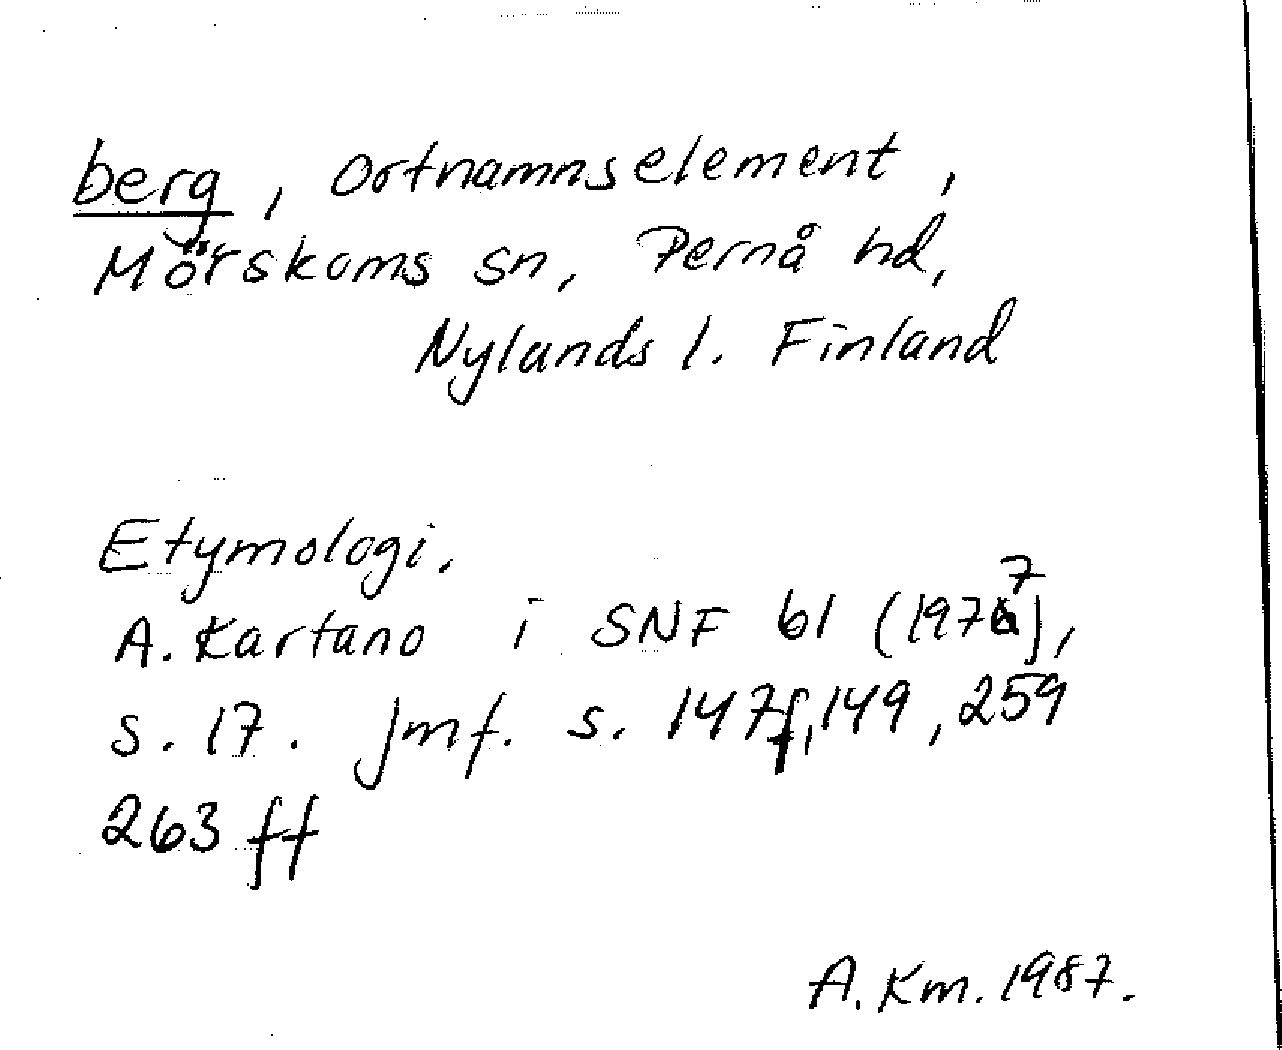 berg, Ortnamnselement,
Mörskoms sn, Pernå hd,
Nylands l. Finland
Etymologi.
A. Kartano i SNF 61 (1977),
s. 17. Jmf. s. 147f, 149, 259
263 ff
A. Km. 1987.